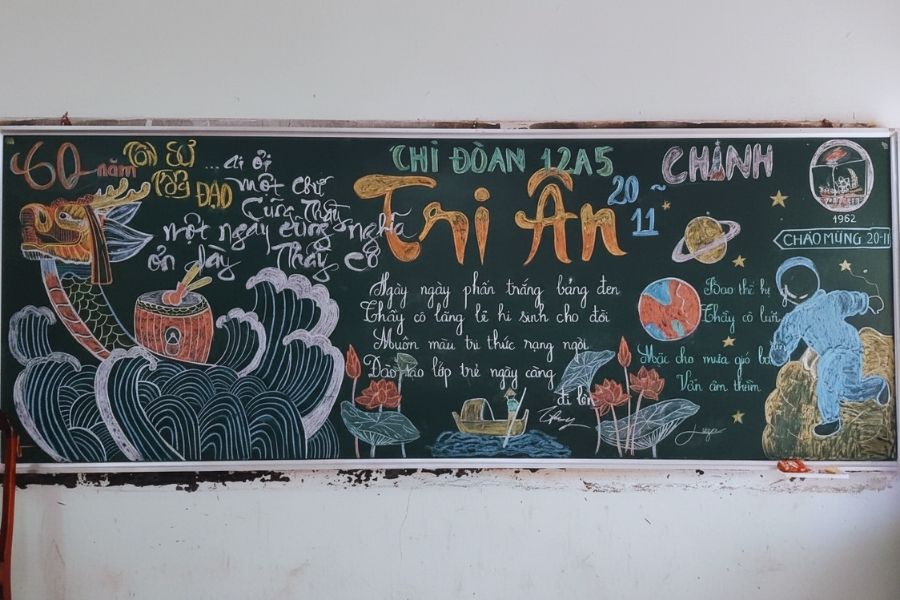 60 năm
TÔN SƯ
TRỌNG ĐẠO
... ai ơi
một chữ
cũng Thầy
một ngày cũng nghĩa
ơn dày Thầy Cô
CHI ĐOÀN 12A5
Tri Ân
20
~
11
CHÁNH
1962
CHÀO MỪNG 20-11
Ngày ngày phấn trắng bảng đen
Thầy cô lặng lẽ hi sinh cho đời
Muôn màu tri thức rạng ngời
Đào tạo lớp trẻ ngày càng
đi lên
Bao thế hệ
Thầy cô
Mặc cho mưa gió
Vẫn âm thầm